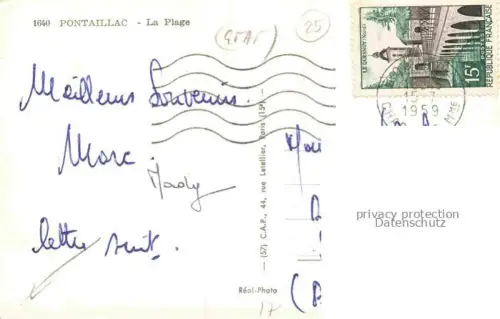 1640 PONTAILLAC - La Plage
25
LE QUESNOY (NORD)
15F
POSTES
REPUBLIQUE FRANÇAISE
1959
Meilleurs Souvenirs.
Marc.
Mady
lettre suit.
(57) C.A.P., 44, rue Letellier, Paris (15e)
privacy protection
Datenschutz
Réal-Photo
17